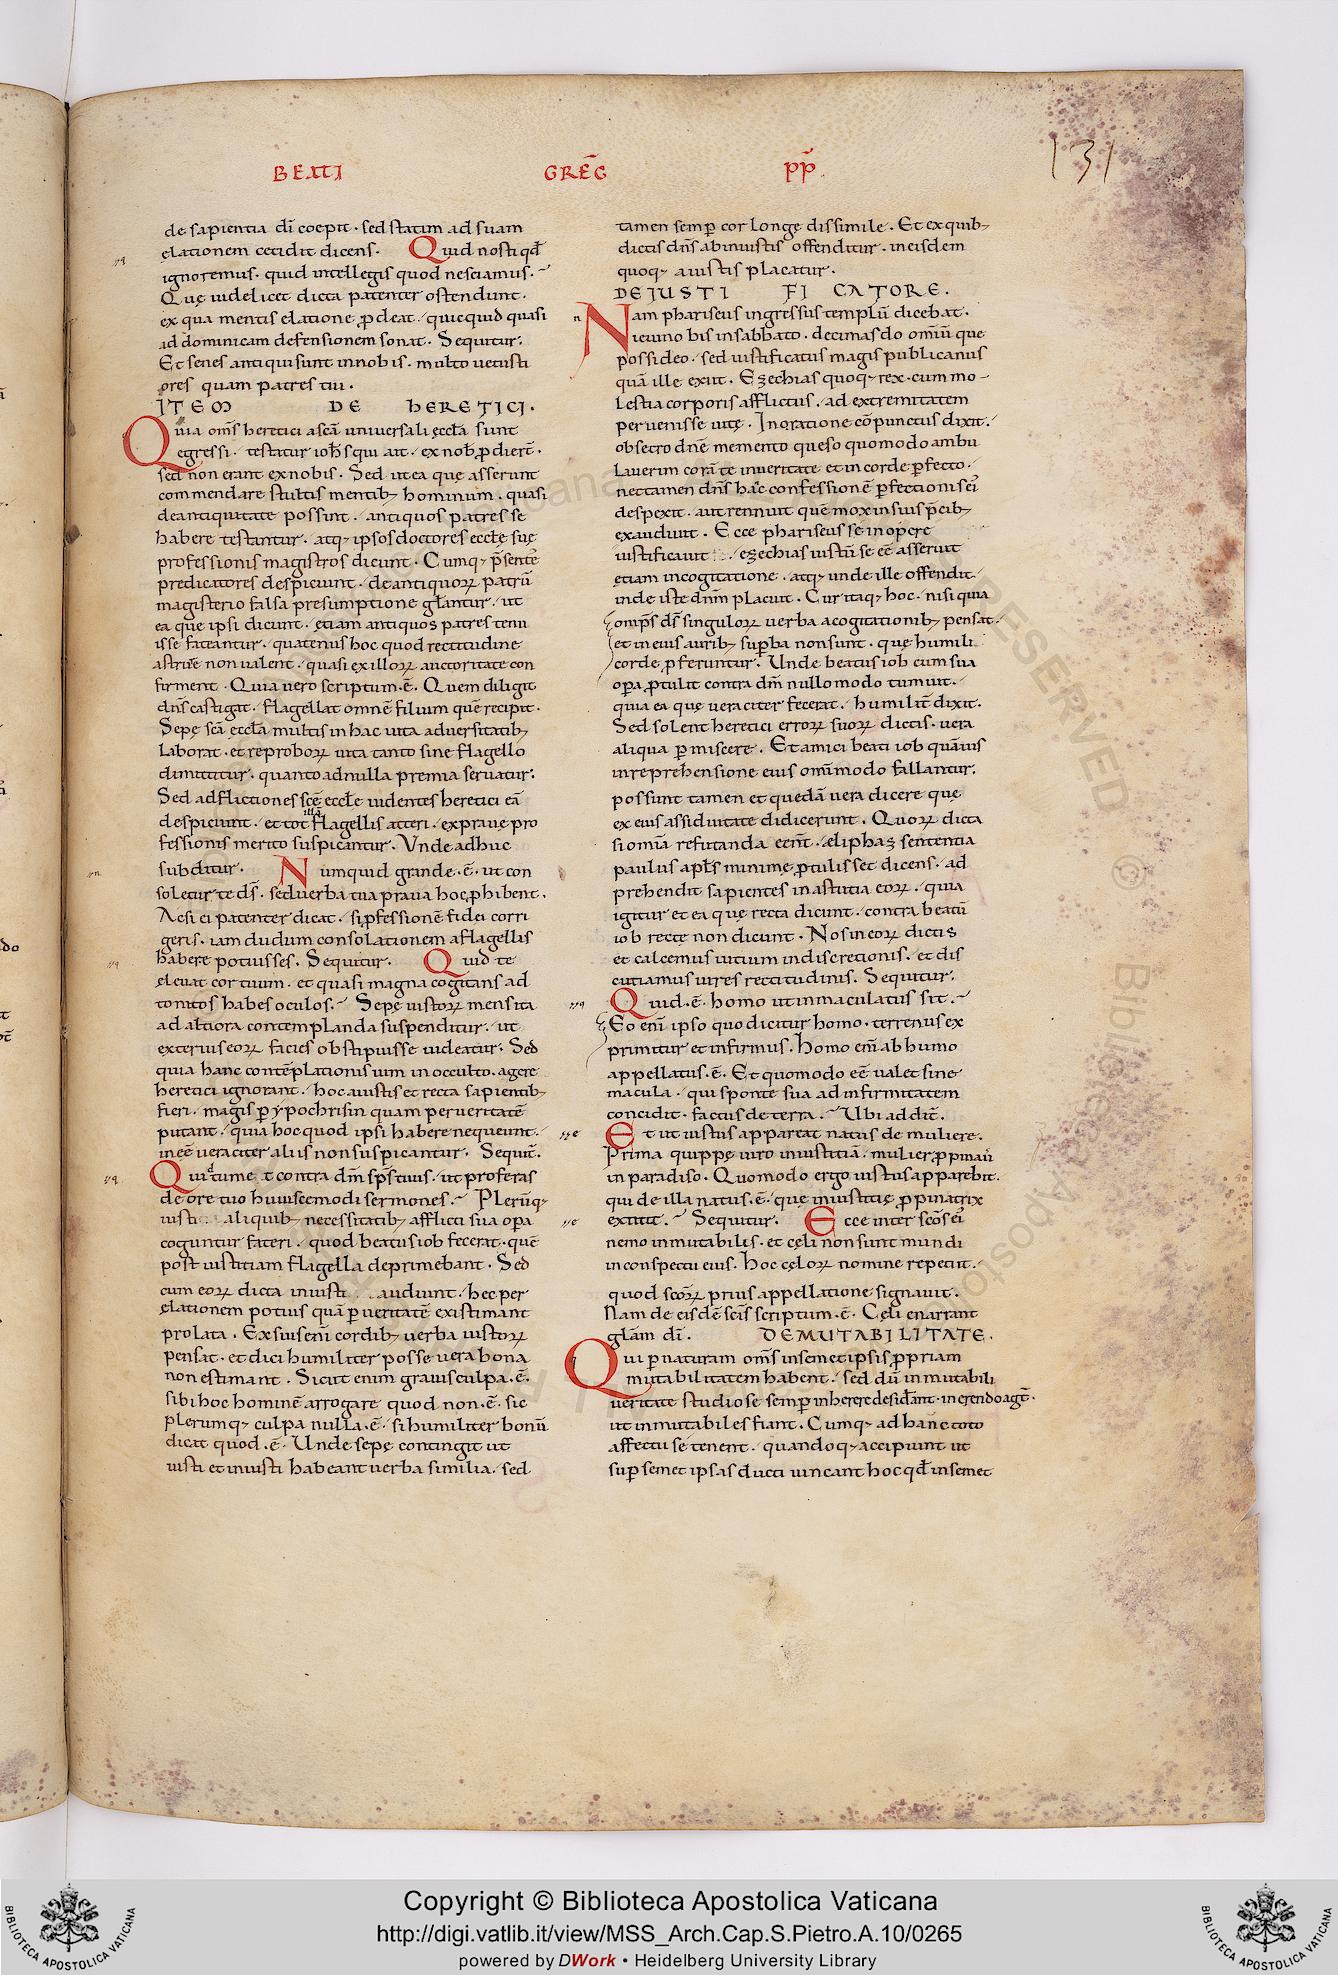 BEATI GREG̅ PP̅.
131
de sapientia dī coepit · sed statim ad suam
ęlationem cecidit dicens. Quid nosti qđ
ignoremus · quid intellegis quod nesciamus.
Quę uidelicet dicta patenter ostendunt.
ex qua mentis elatione ꝓdeat · quicquid quasi
ad dominicam defensionem sonat. Sequitur.
Et senes antiqui sunt in nobis · multo uetusti
ores quam patres tui.
ITEM DE HERETICI.
Quia om̅s heretici a scā uniuersali ęccła sunt
egressi · testatur ioħs qui ait · ex nob̄ ꝓdier̄t.
sed non erant ex nobis. Sed ut ea quę asserunt
commendare stultis mentib; hominum · quasi
de antiquitate possint · antiquos patres se
habere testantur · atq; ipsos doctores eccłę suę
professionis magistros dicunt. Cumq; p̄sentē
predicatores despiciunt · de antiquoꝝ patrū
magisterio falsa presumptione gl̄antur · ut
ea quę ipsi dicunt · ętiam antiquos patres tenu
isse fateantur · quatenus hoc quod rectitudine
astruere non ualent · quasi ex illoꝝ auctoritate con
firment. Quia uero scriptum · ē. Quem diligit
dn̄s castigat · flagellat omnē filium quē recipit.
Sepę scā ęccła multis in hac uita aduersitatib;
laborat · et reproboꝝ uita tanto sine flagello
dimittitur · quanto ad nulla premia seruatur.
Sed adflictiones scę̄ eccłę uidentes heretici eā
despiciunt · et tot illā flagellis atteri · ex prauę pro
fessionis merito suspicantur. Unde adhuc
subditur. Numquid grande · ē · ut con
soletur te dś · sed uerba tua praua hoc ꝓhibent.
Acsi ei patenter dicat · si ꝓfessionē fidei corri
geris · iam dudum consolationem a flagellis
habere potuisses. Sequitur. Quid te
ęleuat cor tuum · et quasi magna cogitans ad
tonitos habes oculos. Sepę iustoꝝ mens ita
ad altiora contemplanda suspenditur · ut
exterius eoꝝ facies obstipuisse uideatur. Sed
quia hanc contēplationis uim in occulto · agere
heretici ignorant · hoc a iustis et recta sapientib;
fieri · magis ꝑ ypochrisin quam per ueritatē
putant · quia hoc quod ipsi habere nequeunt ·
in eē ueraciter aliis non suspicantur. Sequit̄.
Quid tumet contra dm̄ sp̄s tuus · ut proferas
de ore tuo huiuscemodi sermones. Plerūq;
iusti aliquib; necessitatib; afflicti sua oꝑa
coguntur fateri · quod beatus iob fecerat · quē
post iustitiam flagella deprimebant. Sed
cum eoꝝ dicta iniusti audiunt · hęc per
ęlationem potius quā ꝑ ueritatē existimant
prolata. Ex suis enī cordib; uerba iustoꝝ
pensat · et dici humiliter posse uera bona
non estimant. Sicut enim grauis culpa · ē ·
sibi hoc hominē arrogare quod non · ē · sic
plerumq; culpa nulla · ē · si humiliter bonū
dicat quod · ē. Unde sepę contingit ut
iusti et iniusti habeant uerba similia · sed
tamen semꝑ cor longe dissimile. Et ex quib;
dictis dn̄s ab iniustis offenditur · in eisdem
quoq; a iustis placatur.
DE JUSTI FI CATORE.
Nam phariseus ingressus templū dicebat.
Ieiuno bis in sabbato · decimas do om̄iū que
possideo · sed iustificatus magis publicanus
quā ille exiit. Ezechias quoq; rex · cum mo-
lestia corporis afflictus · ad extremitatem
peruenisse uitę. In oratione cōpunctus dixit.
obsecro dnē memento queso quomodo ambu
lauerim corā te in ueritate et in corde ꝑfecto.
nec tamen dn̄s hāc confessionē ꝑfectionis eī
despexit · aut rennuit quē mox in suis p̄cib;
exaudiuit. Ecce phariseus se in opere
iustificauit · ezechias iustū se eē asseruit
etiam in cogitatione · atq; unde ille offendit ·
inde iste dnm̄ placuit. Cur itaq; hoc · nisi quia
omp̄s ds̄ singuloꝝ uerba a cogitationib; pensat ·
et in eius aurib; suꝑba non sunt · quę humili
corde ꝓferuntur. Unde beatus iob cum sua
oꝑa ꝓtulit contra dm̄ nullo modo tumuit ·
quia ea quę ueraciter fecerat · humilit̄ dixit.
Sed solent heretici erroꝝ suoꝝ dictis · uera
aliqua ꝑmiscere. Et amici beati iob quāuis
in reprehensione eius om̄imodo fallantur ·
possunt tamen et quedā uera dicere quę
ex eius assiduitate didicerunt. Quoꝝ dicta
si om̄ia refutanda eēnt · ęliphaz sententia
paulus apłs minimę ꝓtulisset dicens · ad
prehendit sapientes in astutia eoꝝ · quia
igitur et ea quę recta dicunt · contra beatū
iob rectę non dicunt. Nos in eoꝝ dictis
et calcemus uitium indiscretionis · et dis
cutiamus uires rectitudinis. Sequitur.
Quid · ē · homo ut inmaculatus sit.
Eo enī ipso quo dicitur homo · terrenus ex
primitur et infirmus. Homo enī ab humo
appellatus · ē. Et quomodo eē ualet sine
macula · qui sponte sua ad infirmitatem
concidit · factus de terra. Ubi addit̄.
Et ut iustus appareat natus de muliere.
Prima quippę uiro iniustitiā · mulier ꝓpinauit
in paradiso. Quomodo ergo iustus apparebit ·
qui de illa natus · ē · quę iniustitię ꝓpinatrix
extitit. Sequitur. Ecce inter scōs eī
nemo inmutabilis · et cęli non sunt mundi
in conspectu eius. Hoc cęloꝝ nomine repetiit ·
quod scōꝝ prius appellatione signauit.
Nam de eisdē scīs scriptum · ē. Cęli enarrant
glām dī. DE MUTABILITATE.
Qui ꝑ naturam om̅s in semet ipsis ꝓpriam
mutabilitatem habent · sed dū inmutabili
ueritate studiose semꝑ inherere desiderant · inherendo agt̄ ·
ut inmutabiles fiant. Cumq; ad hanc toto
affectu se tenent · quandoq; accipiunt ut
suꝑ semet ipsas ducti uincant hoc qđ in semet
Copyright © Biblioteca Apostolica Vaticana
http://digi.vatlib.it/view/MSS_Arch.Cap.S.Pietro.A.10/0265
powered by DWork • Heidelberg University Library
BIBLIOTECA APOSTOLICA VATICANA
BIBLIOTECA APOSTOLICA VATICANA